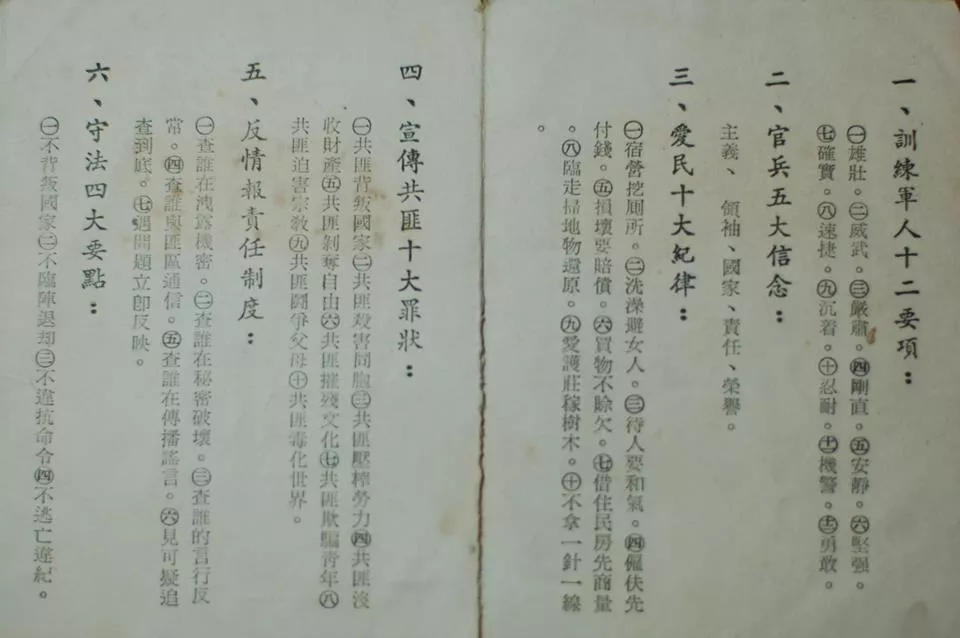 一、訓練軍人十二要項：
㊀雄壯。㊁威武。㊂嚴肅。㊃剛直。㊄安靜。㊅堅强。
㊆確實。㊇速捷。㊈沉着。㊉忍耐。⊕機警。⊕勇敢。
二、官兵五大信念：
主義、領袖、國家、責任、榮譽。
三、愛民十大紀律：
㊀宿營挖厠所。㊁洗澡避女人。㊂待人要和氣。㊃僱伕先
付錢。㊄損壞要賠償。㊅買物不賒欠。㊆借住民房先商量
。㊇臨走掃地物還原。㊈愛護莊稼樹木。㊉不拿一針一線
。
四、宣傳共匪十大罪狀：
㊀共匪背叛國家㊁共匪殺害同胞㊂共匪壓榨勞力㊃共匪沒
收財產㊄共匪剝奪自由㊅共匪摧殘文化㊆共匪欺騙青年㊇
共匪迫害宗敎㊈共匪鬪爭父母㊉共匪毒化世界。
五、反情報責任制度：
㊀查誰在洩露機密。㊁查誰在秘密破壞。㊂查誰的言行反
常。㊃查誰與匪區通信。㊄查誰在傳播謠言。㊅見可疑追
查到底。㊆遇問題立卽反映。
六、守法四大要點：
㊀不背叛國家㊁不臨陣退却㊂不違抗命令㊃不逃亡違紀。